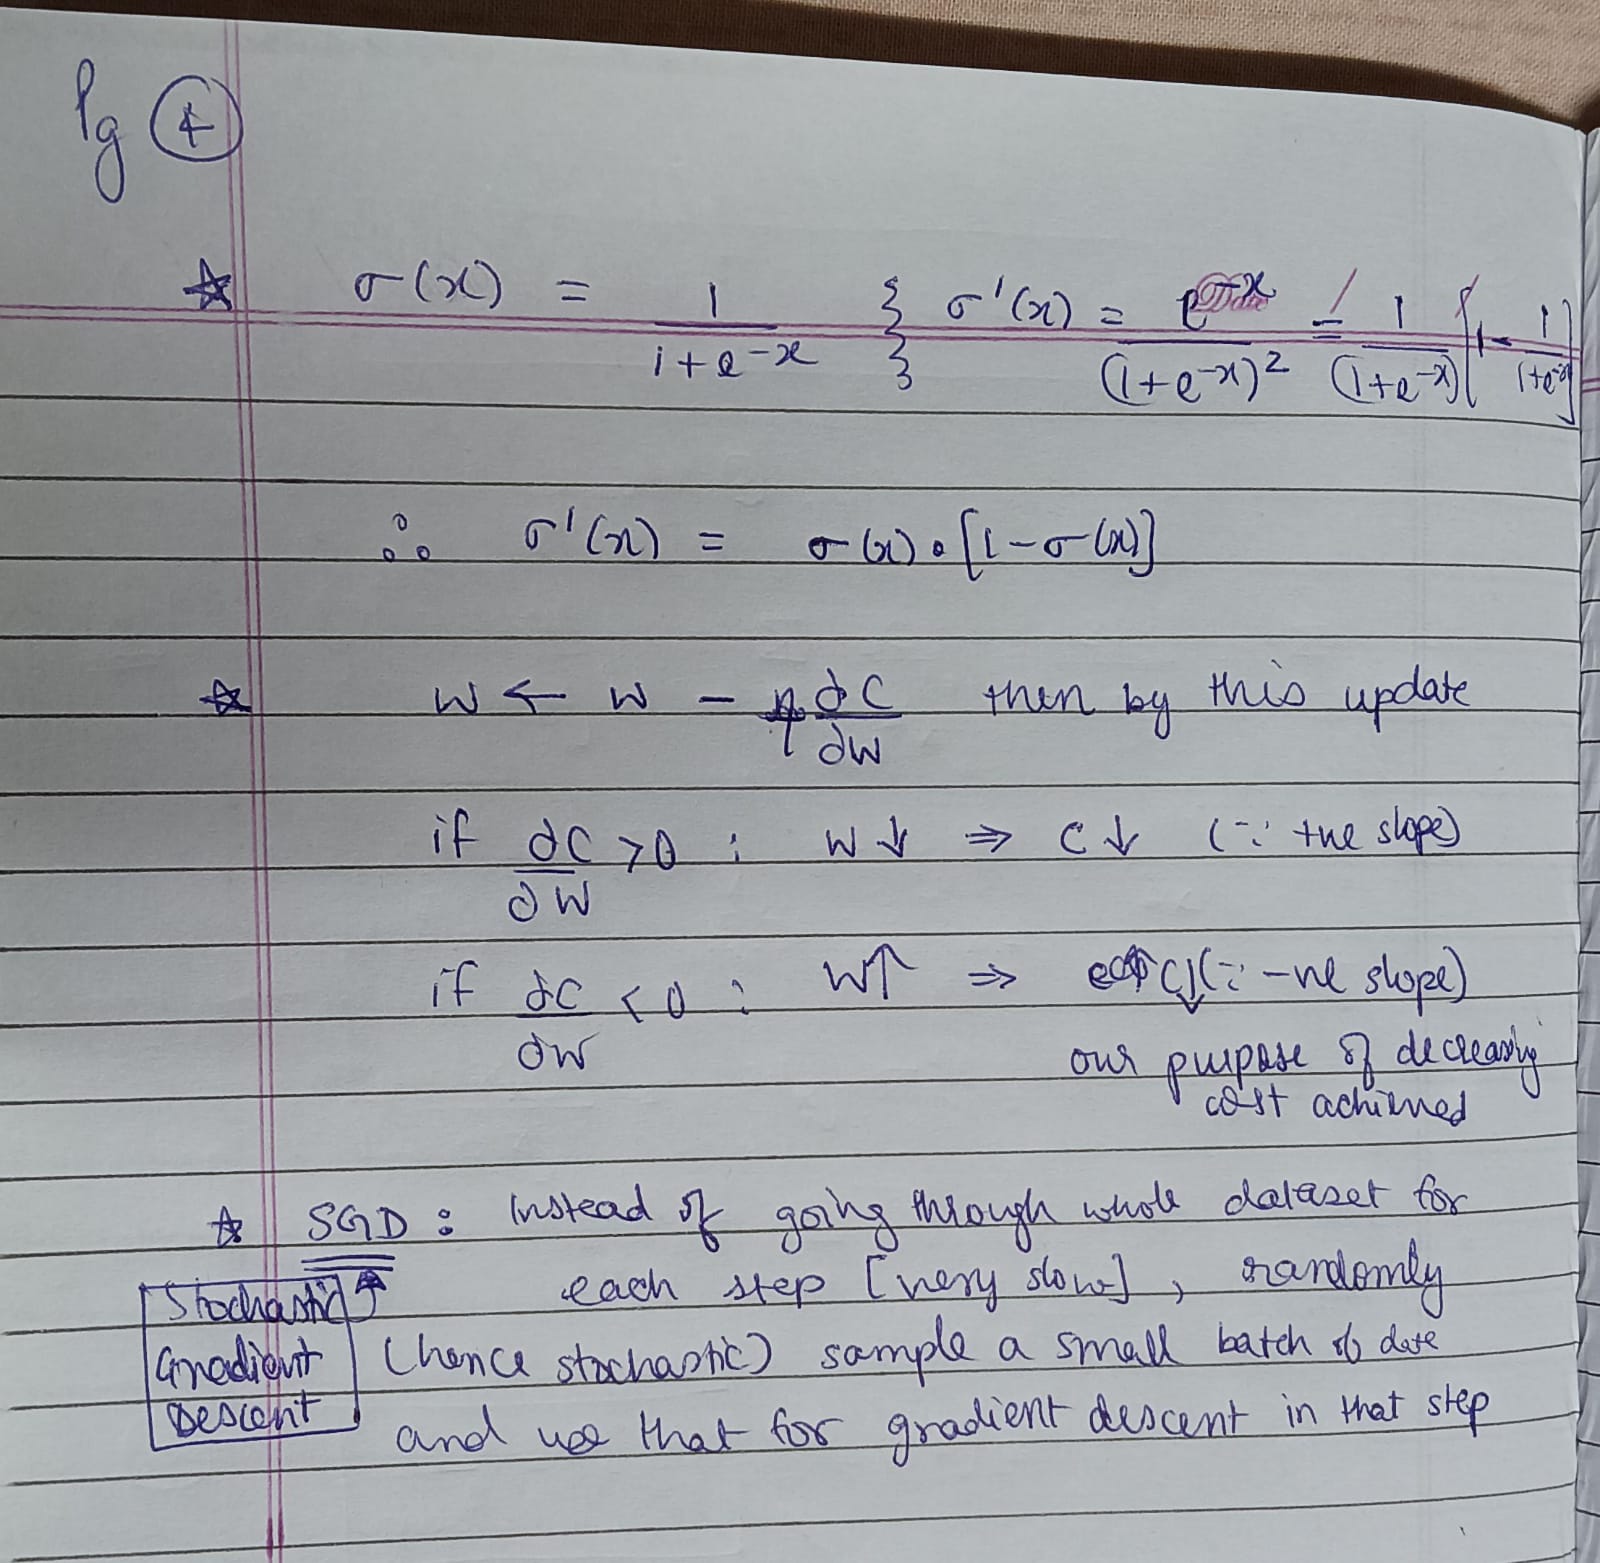 Pg ④
☆ σ(x) = 1/(1+e^-x) } σ'(x) = e^-x/(1+e^-x)^2 = 1/(1+e^-x) [1 - 1/(1+e^-x)]
∴ σ'(x) = σ(x)·[1-σ(x)]
☆ w ← w - η ∂C/∂w then by this update
if ∂C/∂w > 0 : w↓ ⇒ C↓ (∵ +ve slope)
if ∂C/∂w < 0 : w↑ ⇒ C↓ (∵ -ve slope)
our purpose of decreasing
cost achieved
☆ SGD : Instead of going through whole dataset for
each step [very slow], randomly
Stochastic
Gradient (hence stochastic) sample a small batch of date
Descent and use that for gradient descent in that step